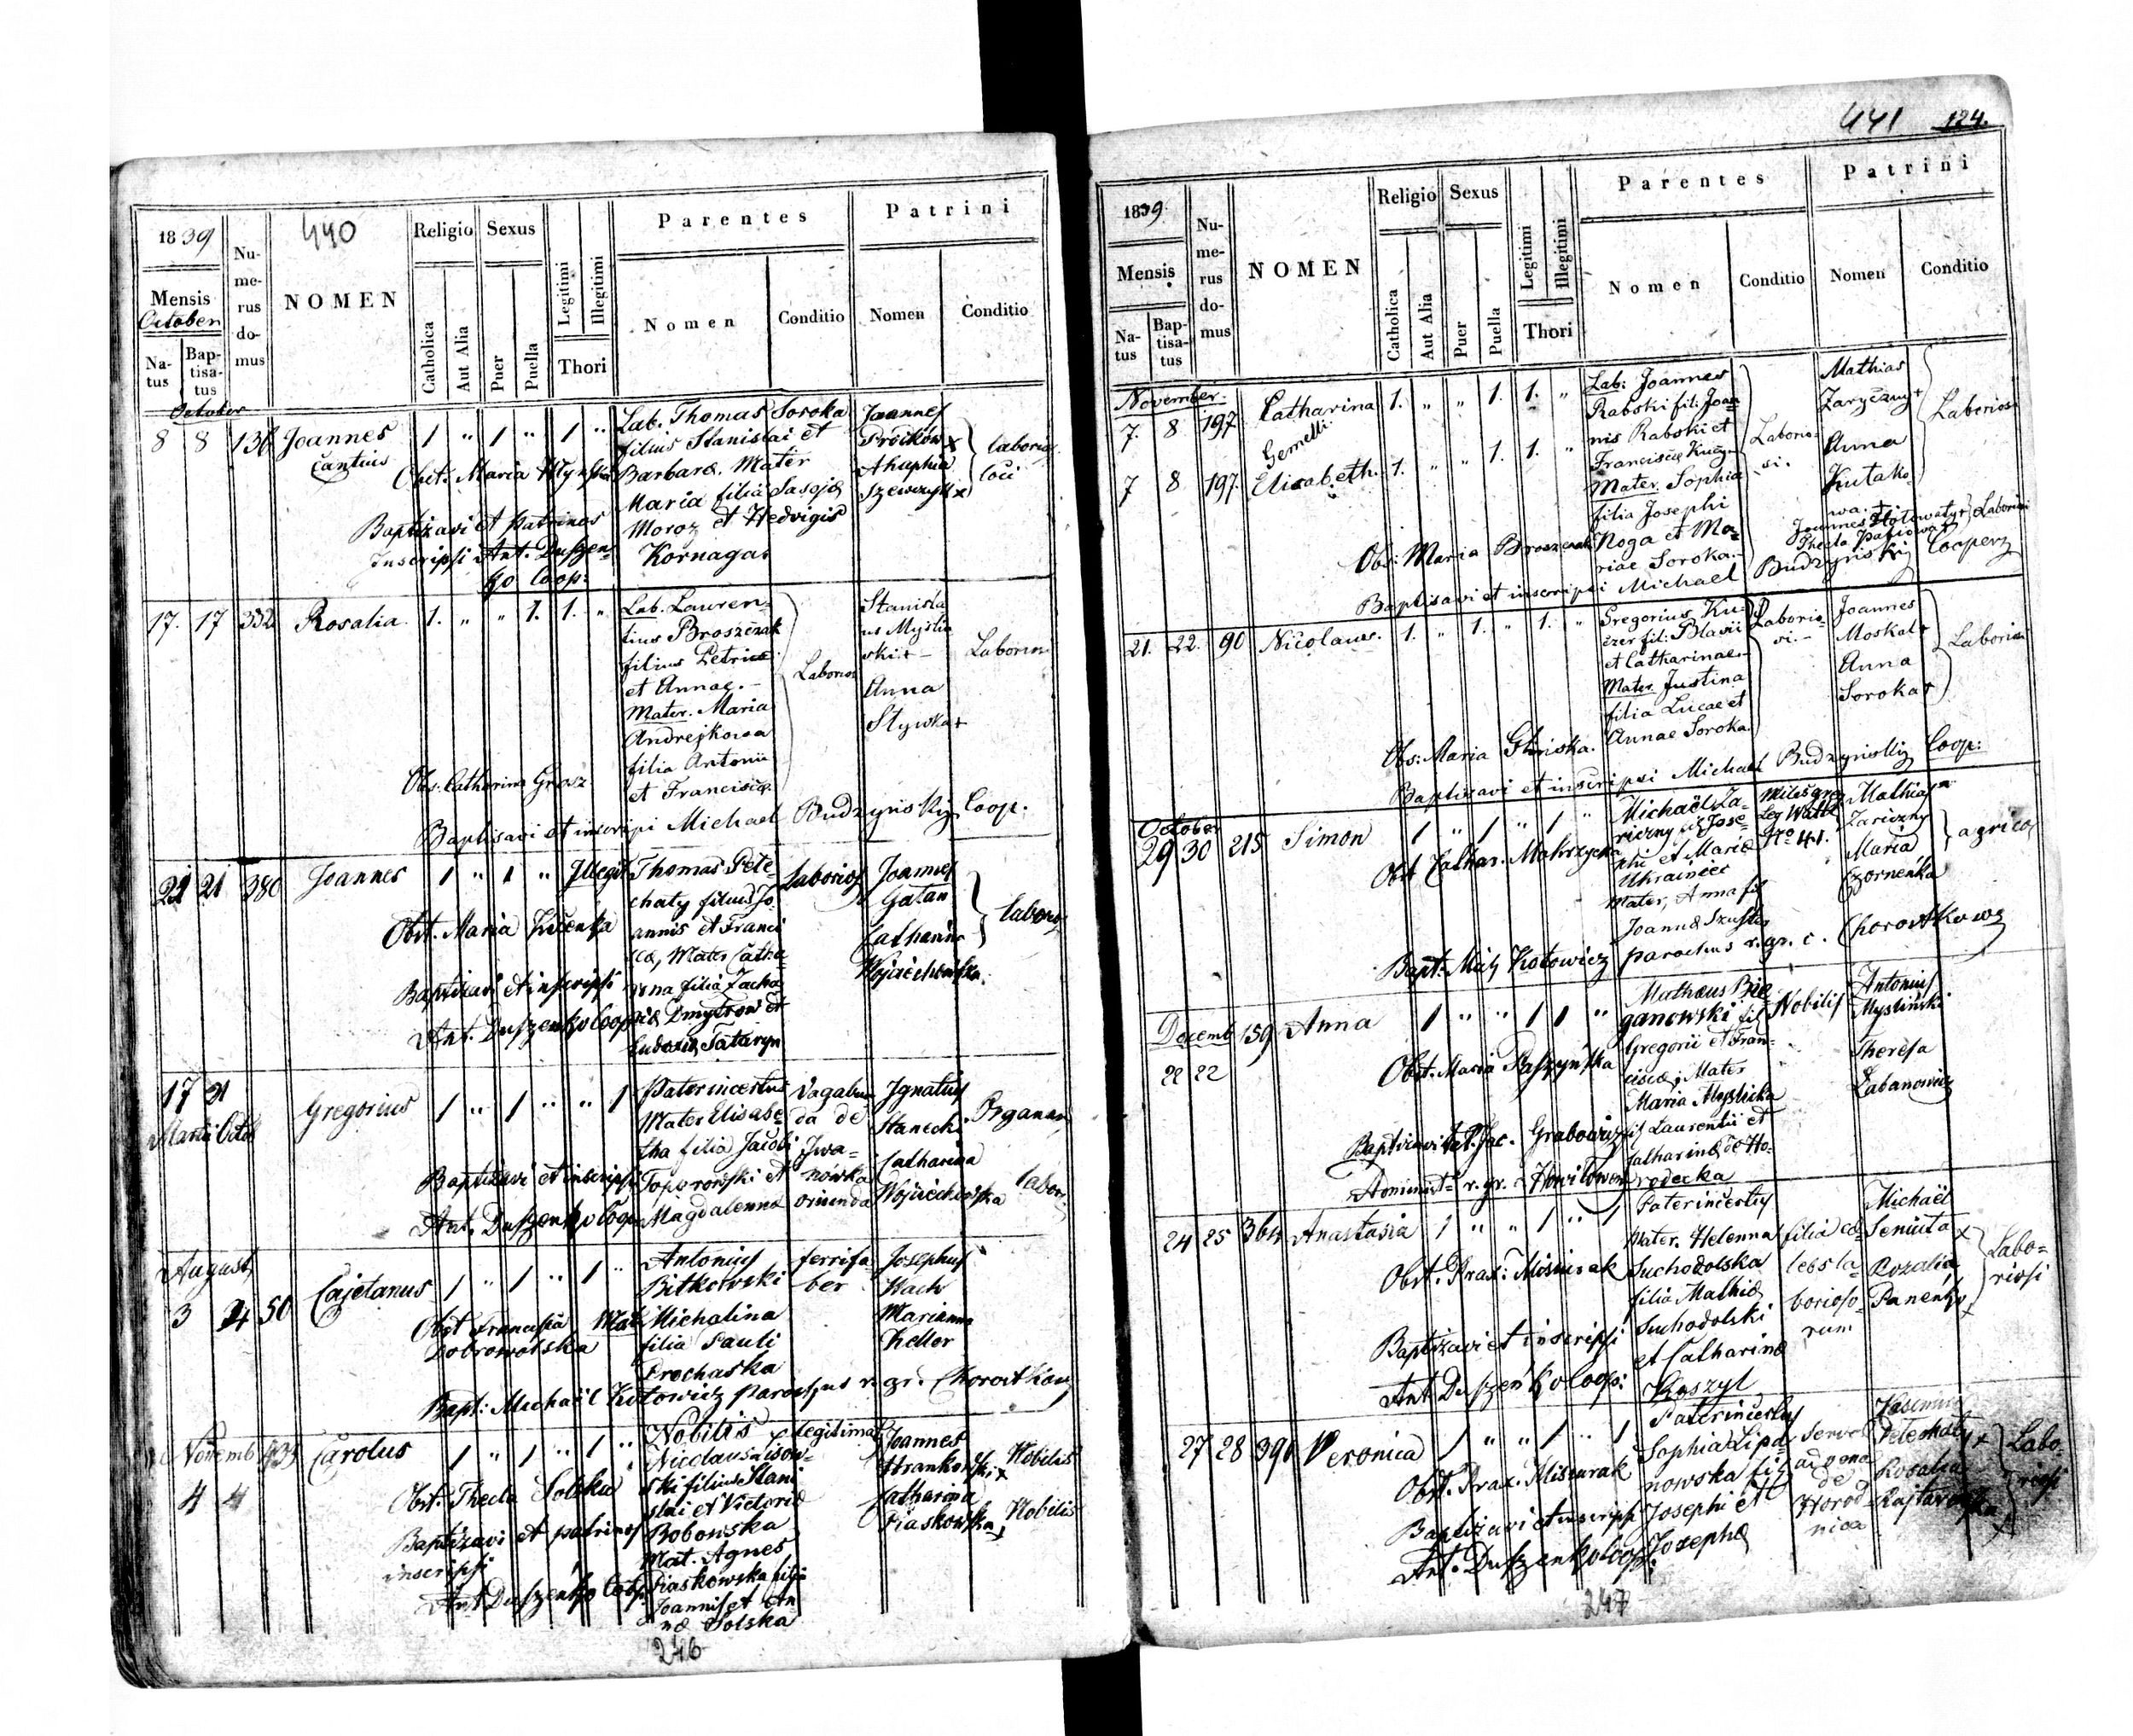 440
1839
Mensis
October
Natus
Baptisatus
Numerus domus
NOMEN
Religio
Catholica
Aut Alia
Sexus
Puer
Puella
Legitimi
Illegitimi
Thori
Parentes
Nomen
Conditio
Patrini
Nomen
Conditio
October
8 8 136 Joannes
Cantius
1 " 1 " 1 "
Lab. Thomas Soroka
filius Stanislai et
Barbaræ. Mater
Maria filia
Moroz et Hedvigis
Kornaga
Joannes
Anna
Szewczyk x
laborio
Obst. Maria
Baptizavi et Patrinos
Inscripsi Ant. Duszen=
ko Coop:
17. 17 332 Rosalia. 1. " " 1. 1. "
Lab. Lauren=
tius Broszczak
filius Petri
et Annae.-
Mater. Maria
Andrejkowa
filia Antonii
et Franciscæ
Laborios
Stanisla
us Myśliw
ski +
Anna
Stywka +
Laborios
Obs: Catharina Grosz
Baptisavi et inscripsi Michael Budzynskij Coop.
21 21 380 Joannes 1 " 1 " Illegit
Thomas Pele=
chaty filius Jo
annis et Franci
scæ, Mater Catha=
rina filia Zacha
riæ Dmytrow et
Eudoxiæ Tataryn
laborios
Joannes
Gatan
Catharina
Wojciechowska
labor
Obst. Maria
Baptizavi et inscripsi
Ant. Duszenko Coop
17 21
Martii Octob
Gregorius 1 " 1 " " 1
Pater incertus
Mater Elisabe=
tha filia Jacobi
Toporowski et
Magdalenna
Vagabun
da de
Iwa=
nówka
oriunda
Ignatius
Stanecki
Catharina
Wojciechowska
Organar
labor
Baptizavi et inscripsi
Ant. Duszenko Coop
August
3 4 50 Cajetanus 1 " 1 " 1 "
Antonius
Bitkowski
Mat. Michalina
filia Pauli
Prochaska
ferrifa
ber
Josephus
Wach
Marianna
Keller
Obst Francisca
Dobrowolska
Bapt: Michaël Kotowicz parochus r. gr. Chorostkow
Novemb 435 Carolus 1 " 1 " 1 "
4 4
Nobilis
Nicolaus Lisow=
ski filius Stani
slai et Victoriæ
Bobowska
Mat. Agnes
Piaskowska filia
Joannis et An
næ Solska
legitimat
Joannes
Hrankowski x
Catharina
Piaskowska x
Nobilis
Nobilis
Obst. Thecla Solska
Baptizavi et patrinos
inscripsi
Ant Duszenko Coop
246
441 124.
1839.
Mensis
Natus
Baptisatus
Numerus domus
NOMEN
Religio
Catholica
Aut Alia
Sexus
Puer
Puella
Legitimi
Illegitimi
Thori
Parentes
Nomen
Conditio
Patrini
Nomen
Conditio
November.
7. 8 197 Catharina 1. " " 1. 1. "
Gemelli.
7 8 197. Elisabeth. 1. " " 1. 1. "
Lab: Joannes
Rabski fil: Joan
nis Rabski et
Franciscæ
Mater. Sophia
filia Josephi
Noga et Ma=
riae Soroka.-
Laborio=
si.
Mathias
Zaryczny +
Anna
Kutako=
wa. +
Joannes Hotowaty +
Thecla
Laborios
Laboriosi
Obs: Maria Broszczak
Baptisavi et inscripsi Michael Budzynskij Cooperz
21. 22. 90 Nicolaus. 1. " 1. " 1. "
Gregorius Ku=
czer fil: Blasii
et Catharinae.-
Mater. Justina
filia Lucae et
Annae Soroka.
Laborio=
si.-
Joannes
Moskal +
Anna
Soroka +
Laboriosi
Obs: Maria
Baptizavi et inscripsi Michael Budzynskij Coop:
October
29 30 215 Simon 1 " 1 " 1 "
Michaël Za=
riczny fil Jose=
phi et Mariæ
Ukrainiec
Mater, Anna fil
Joannis
Miles greg
Leg
Nro 41.
Mathias
Zariczny
Maria
Czornéńka
agricol
Obst Cathar. Mokrzycka
Bapt: Mich Kotowicz parochus r. gr. c. Chorostkow
Decemb 159 Anna 1 " " 1 1 "
22 22
Mathæus Bie
ganowski fil
Gregorii et Fran=
ciscæ, Mater
Maria Myślicka
fil Laurentii et
Catharinæ de Ho=
rodecka
Nobilis
Antonius
Mysliński
Theresa
Labanowicz
Obst. Maria Paszyńska
Baptizavit P. Jac. Grabowicz
Administr r. gr. Howiłow
24 25 364 Anastasia 1 " " 1 " 1
Pater incertus
Mater. Helenna
Suchodolska
filia Mathiæ
Suchodolski
et Catharinæ
Koszyl
filia cæ=
lebs la=
borioso=
rum
Michaël
Seniuta x
Rozalia
Panenko x
Labo=
riosi
Obst. Prax: Misiurak
Baptizavi et inscripsi
Ant. Duszeńko Coop:
27 28 390 Veronica 1 " " 1 " 1
Pater incertus
Sophia Lipa=
nowska fil
Josephi et
Josephæ
de
Horod
nica
Pelechaty x
Rosalia
Labo
riosi
Obst. Prax. Misiurak
Baptizavi et inscripsi
Ant. Duszenko Coop.
247